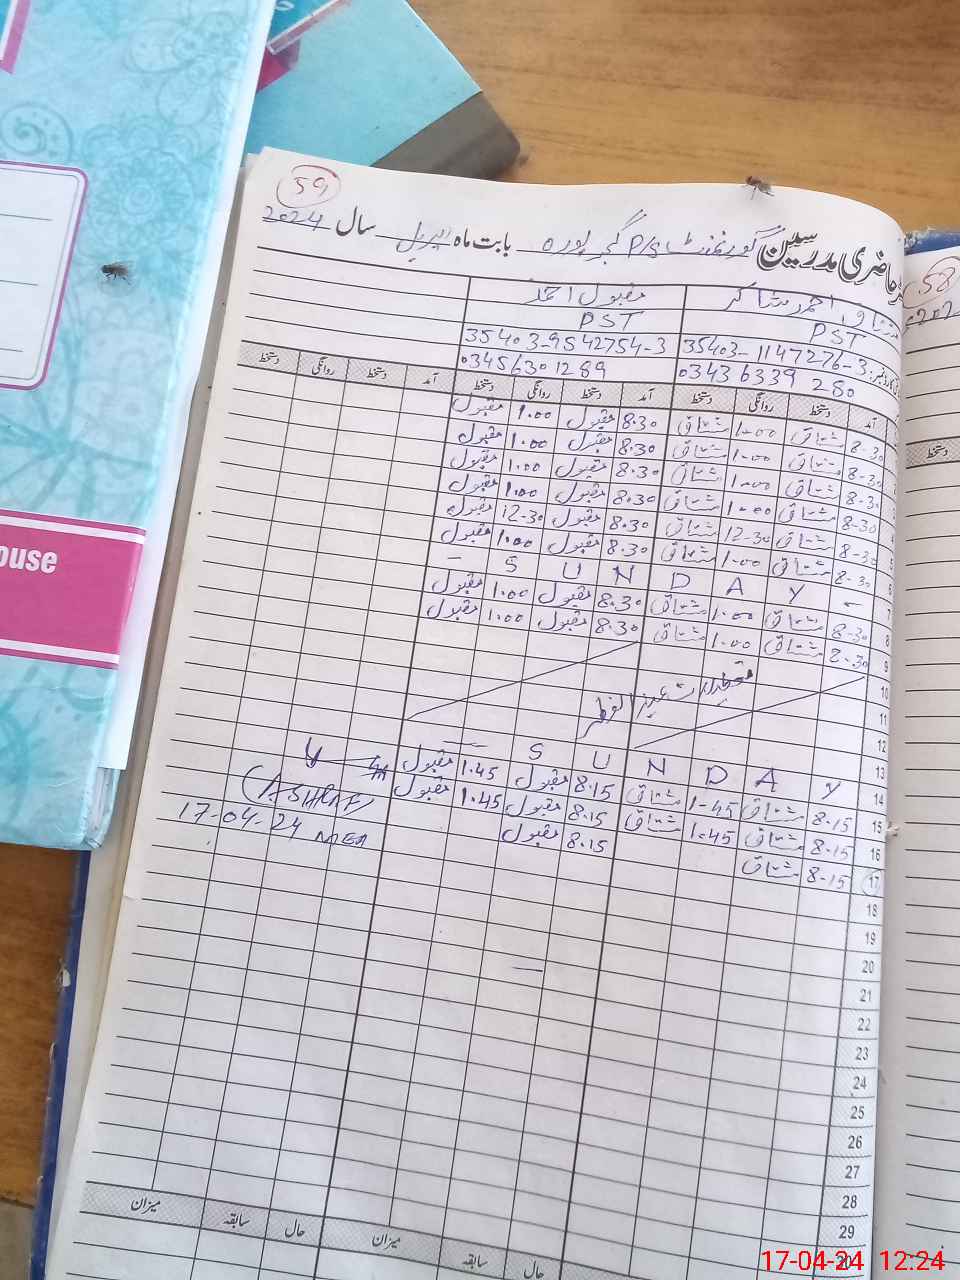 59
حاضری مدرسین گورنمنٹ P/S گجر پورہ بابت ماہ اپریل سال 2024
مشتاق احمد شاکر مقبول احمد
PST PST
35403-1147276-3 35403-9542754-3
0343 6339 280 03456301289
آمد دستخط روانگی دستخط آمد دستخط روانگی دستخط آمد دستخط روانگی دستخط
8-30 مشتاق 1-00 مشتاق 8.30 مقبول 1.00 مقبول
8-30 مشتاق 1-00 مشتاق 8.30 مقبول 1.00 مقبول
8-30 مشتاق 1-00 مشتاق 8.30 مقبول 1.00 مقبول
4 8-30 مشتاق 1-00 مشتاق 8.30 مقبول 1.00 مقبول
5 8-30 مشتاق 12-30 مشتاق 8.30 مقبول 12-30 مقبول
6 8-30 مشتاق 1-00 مشتاق 8.30 مقبول 1.00 مقبول
7 - S U N D A Y -
8 8-30 مشتاق 1-00 مشتاق 8.30 مقبول 1.00 مقبول
9 8-30 مشتاق 1-00 مشتاق 8.30 مقبول 1.00 مقبول
10
11 تعطیلات عید الفطر
12
13
14 S U N D A Y
15 8-15 مشتاق 1-45 مشتاق 8.15 مقبول 1.45 مقبول
16 8-15 مشتاق 1-45 مشتاق 8.15 مقبول 1.45 مقبول
17 8-15 مشتاق 8.15 مقبول
(ASHRAF)
17-04-24 MEA
18
19
20
21
22
23
24
25
26
27
28
29
30
حال سابقہ میزان حال سابقہ میزان
58
دستخط
ouse
17-04-24 12:24